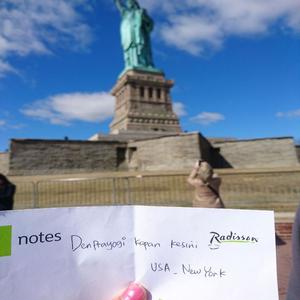 notes Denprayogi kapan kesini Radisson
USA - New York